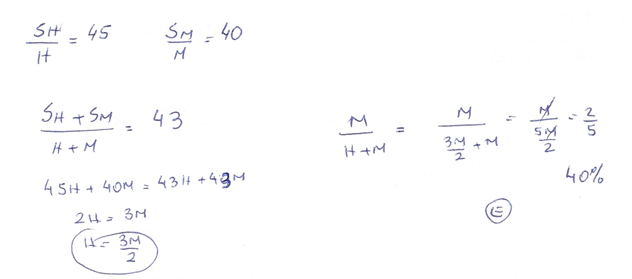 SH/H = 45    SM/M = 40
SH + SM / H + M = 43
45H + 40M = 43H + 43M
2H = 3M
H = 3M/2
M / H + M = M / 3M/2 + M = M / 5M/2 = 2/5
40%
E